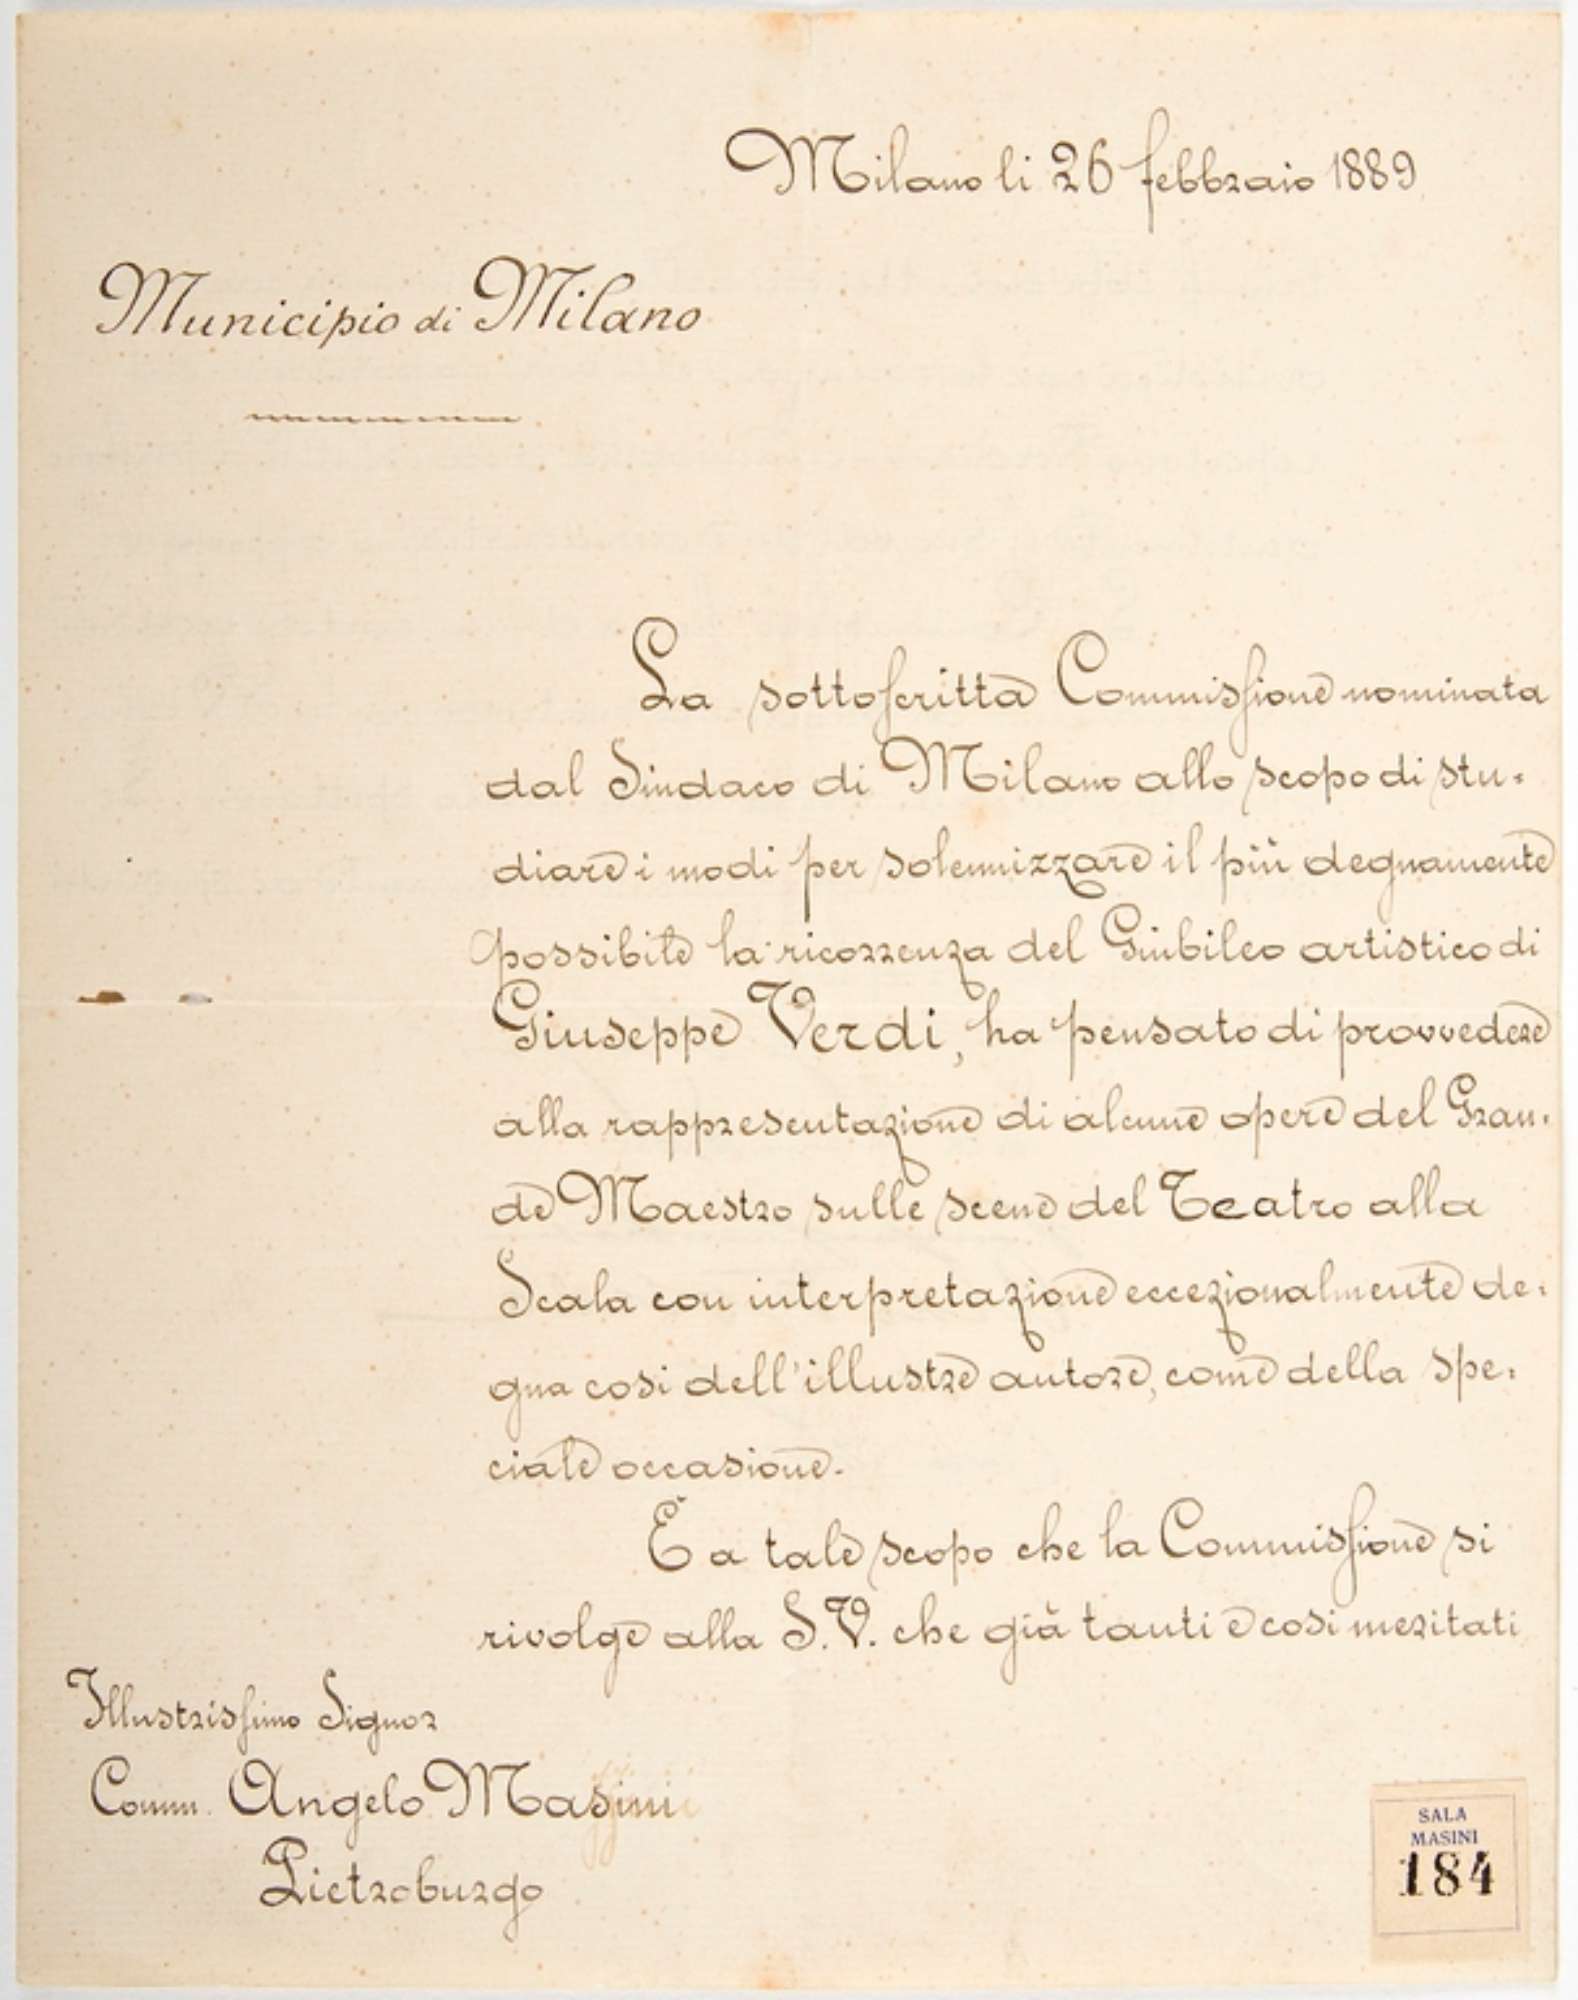 Milano li 26 febbraio 1889
Municipio di Milano
La sottoscritta Commissione nominata
dal Sindaco di Milano allo scopo di stu-
diare i modi per solennizzare il più degnamente
possibile la ricorrenza del Giubileo artistico di
Giuseppe Verdi, ha pensato di provvedere
alla rappresentazione di alcune opere del Gran-
de Maestro sulle scene del Teatro alla
Scala con interpretazione eccezionalmente de-
gna cosi dell'illustre autore, come della spe-
ciale occasione.
È a tale scopo che la Commissione si
rivolge alla S.V. che già tanti e cosi meritati
Illustrissimo Signor
Comm. Angelo Masini
Pietroburgo
SALA
MASINI
184